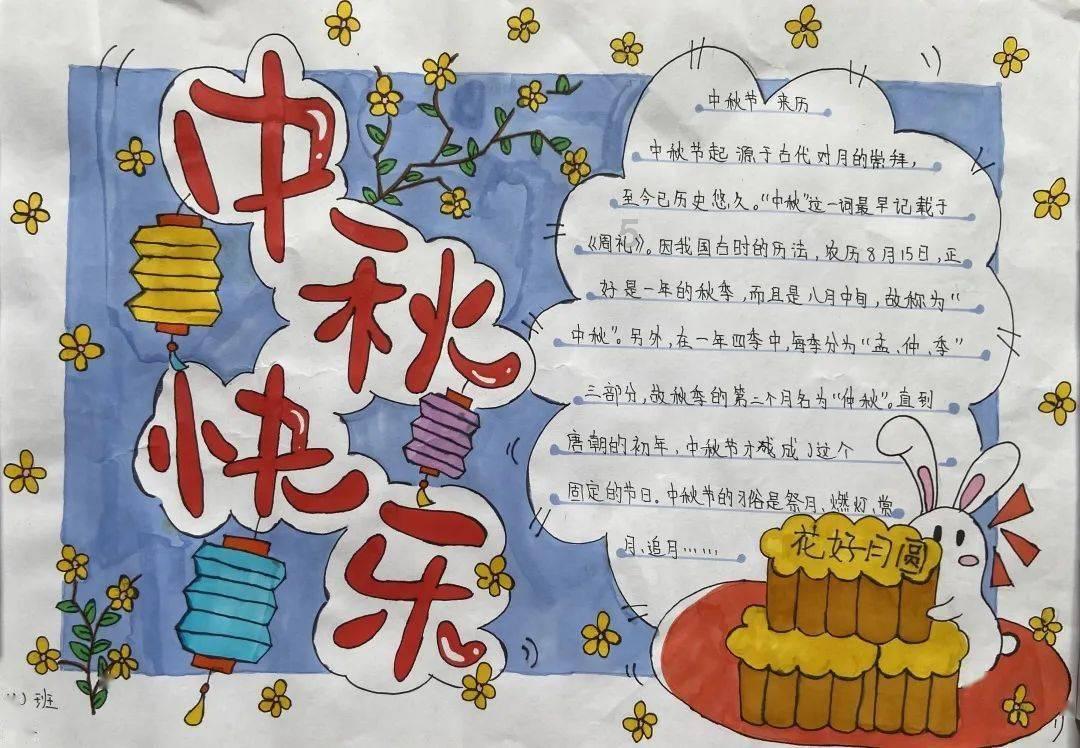 中秋快乐
中秋节 来历
中秋节起源于古代对月的崇拜，
至今已历史悠久。“中秋”这一词最早记载于
《周礼》。因我国古时的历法，农历8月15日，正
好是一年的秋季，而且是八月中旬，故称为“
中秋”。另外，在一年四季中，每季分为“孟、仲、季”
三部分，故秋季的第二个月名为“仲秋”。直到
唐朝的初年，中秋节才成了这个
固定的节日。中秋节的习俗是祭月、燃灯、赏
月、追月……
花好月圆
班